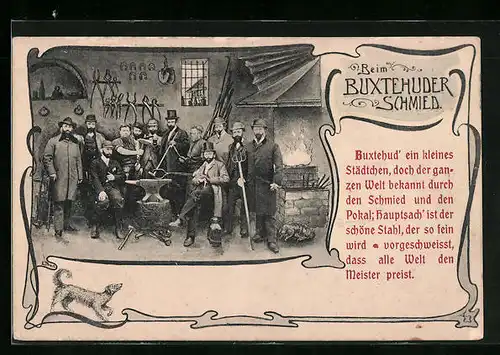 Beim
BUXTEHUDER
SCHMIED.
Buxtehud' ein kleines
Städtchen, doch der gan-
zen Welt bekannt durch
den Schmied und den
Pokal; Hauptsach' ist der
schöne Stahl, der so fein
wird vorgeschweisst,
dass alle Welt den
Meister preist.